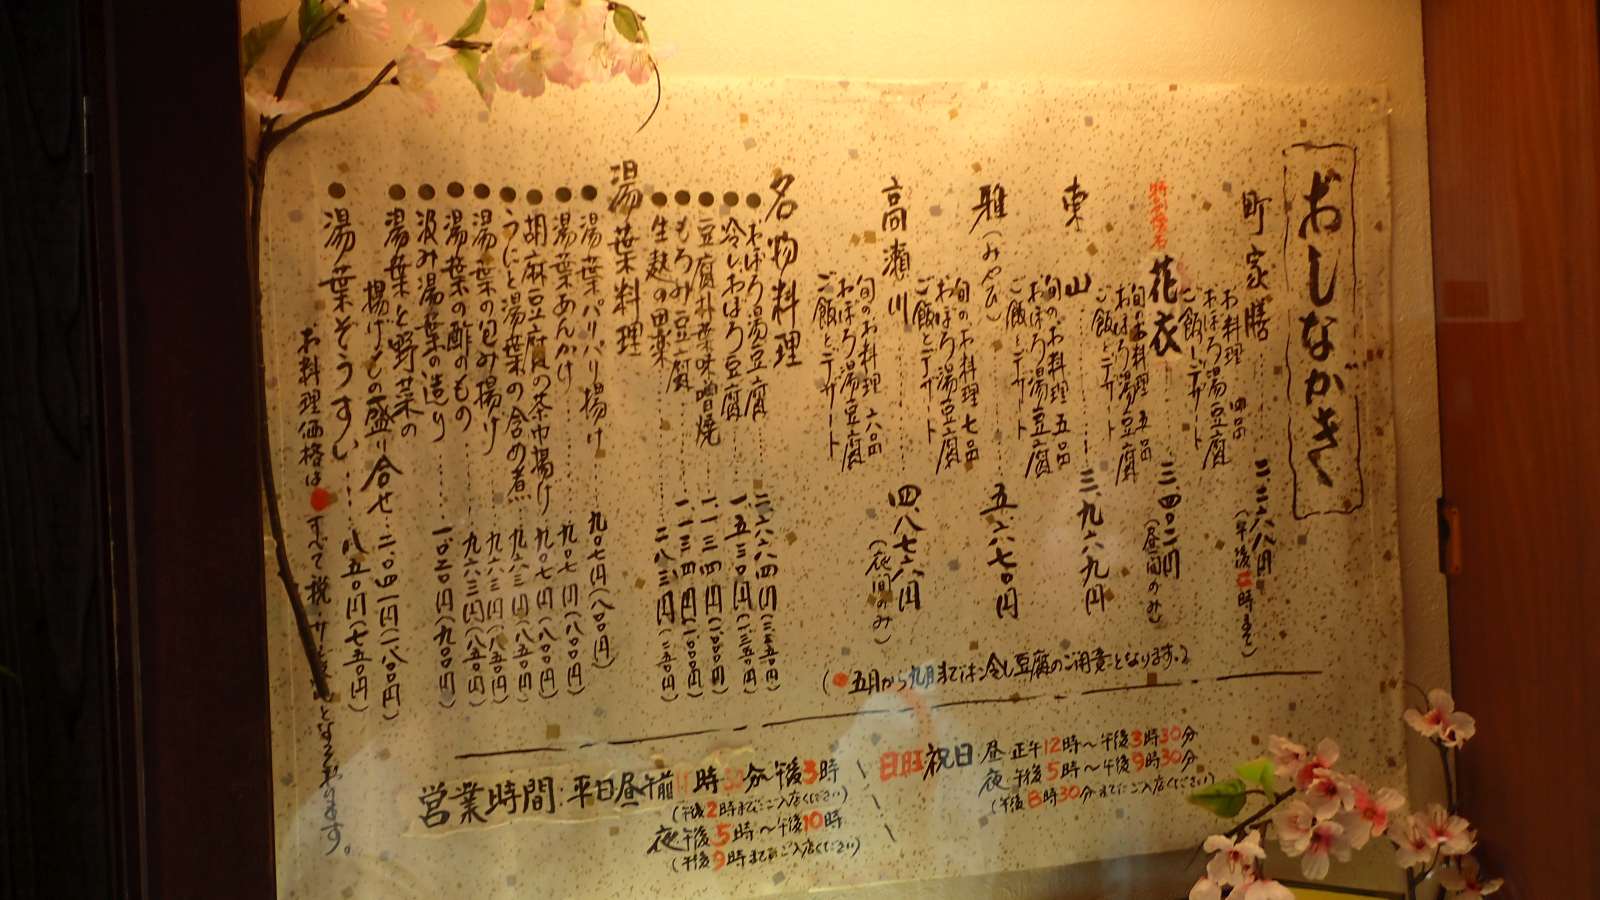 おしながき
町家膳
お料理 四品
おぼろ湯豆腐
ご飯とデザート
(午後二時まで)
特別献立
花衣
三、四〇二円
(昼間のみ)
旬のお料理 五品
おぼろ湯豆腐
ご飯とデザート
東山
三、九六九円
旬のお料理 五品
おぼろ湯豆腐
ご飯とデザート
雅(みやび)
五、六七〇円
旬のお料理 七品
おぼろ湯豆腐
ご飯とデザート
高瀬川
四、八七六円
(夜間のみ)
旬のお料理 六品
おぼろ湯豆腐
ご飯とデザート
(●五月から九月までは冷し豆腐のご用意となります。)
名物料理
●おぼろ湯豆腐
●冷しおぼろ豆腐
●豆腐朴葉味噌焼 一、一三四円(一、〇〇〇円)
●もろみ豆腐 一、一三四円(一、〇〇〇円)
●生麩の田楽
湯葉料理
●湯葉パリパリ揚げ 九〇七円(八〇〇円)
●湯葉あんかけ 九〇七円(八〇〇円)
●胡麻豆腐の茶巾揚げ 九〇七円(八〇〇円)
●うにと湯葉の含め煮 九六三円(八五〇円)
●湯葉の包み揚げ 九六三円(八五〇円)
●湯葉の酢のもの 九六三円(八五〇円)
●汲み湯葉の造り 一、〇二〇円(九〇〇円)
●湯葉と野菜の
揚げもの盛り合せ 二、〇四一円(一、八〇〇円)
●湯葉ぞうすい 八五〇円(七五〇円)
お料理価格は●すべて税サ
営業時間:平日昼午前11時30分~午後3時
(午後2時までにご入店ください)
夜午後5時~午後10時
(午後9時までにご入店ください)
日曜祝日:昼 正午12時~午後3時30分
夜 午後5時~午後9時30分
(午後8時30分までにご入店ください)